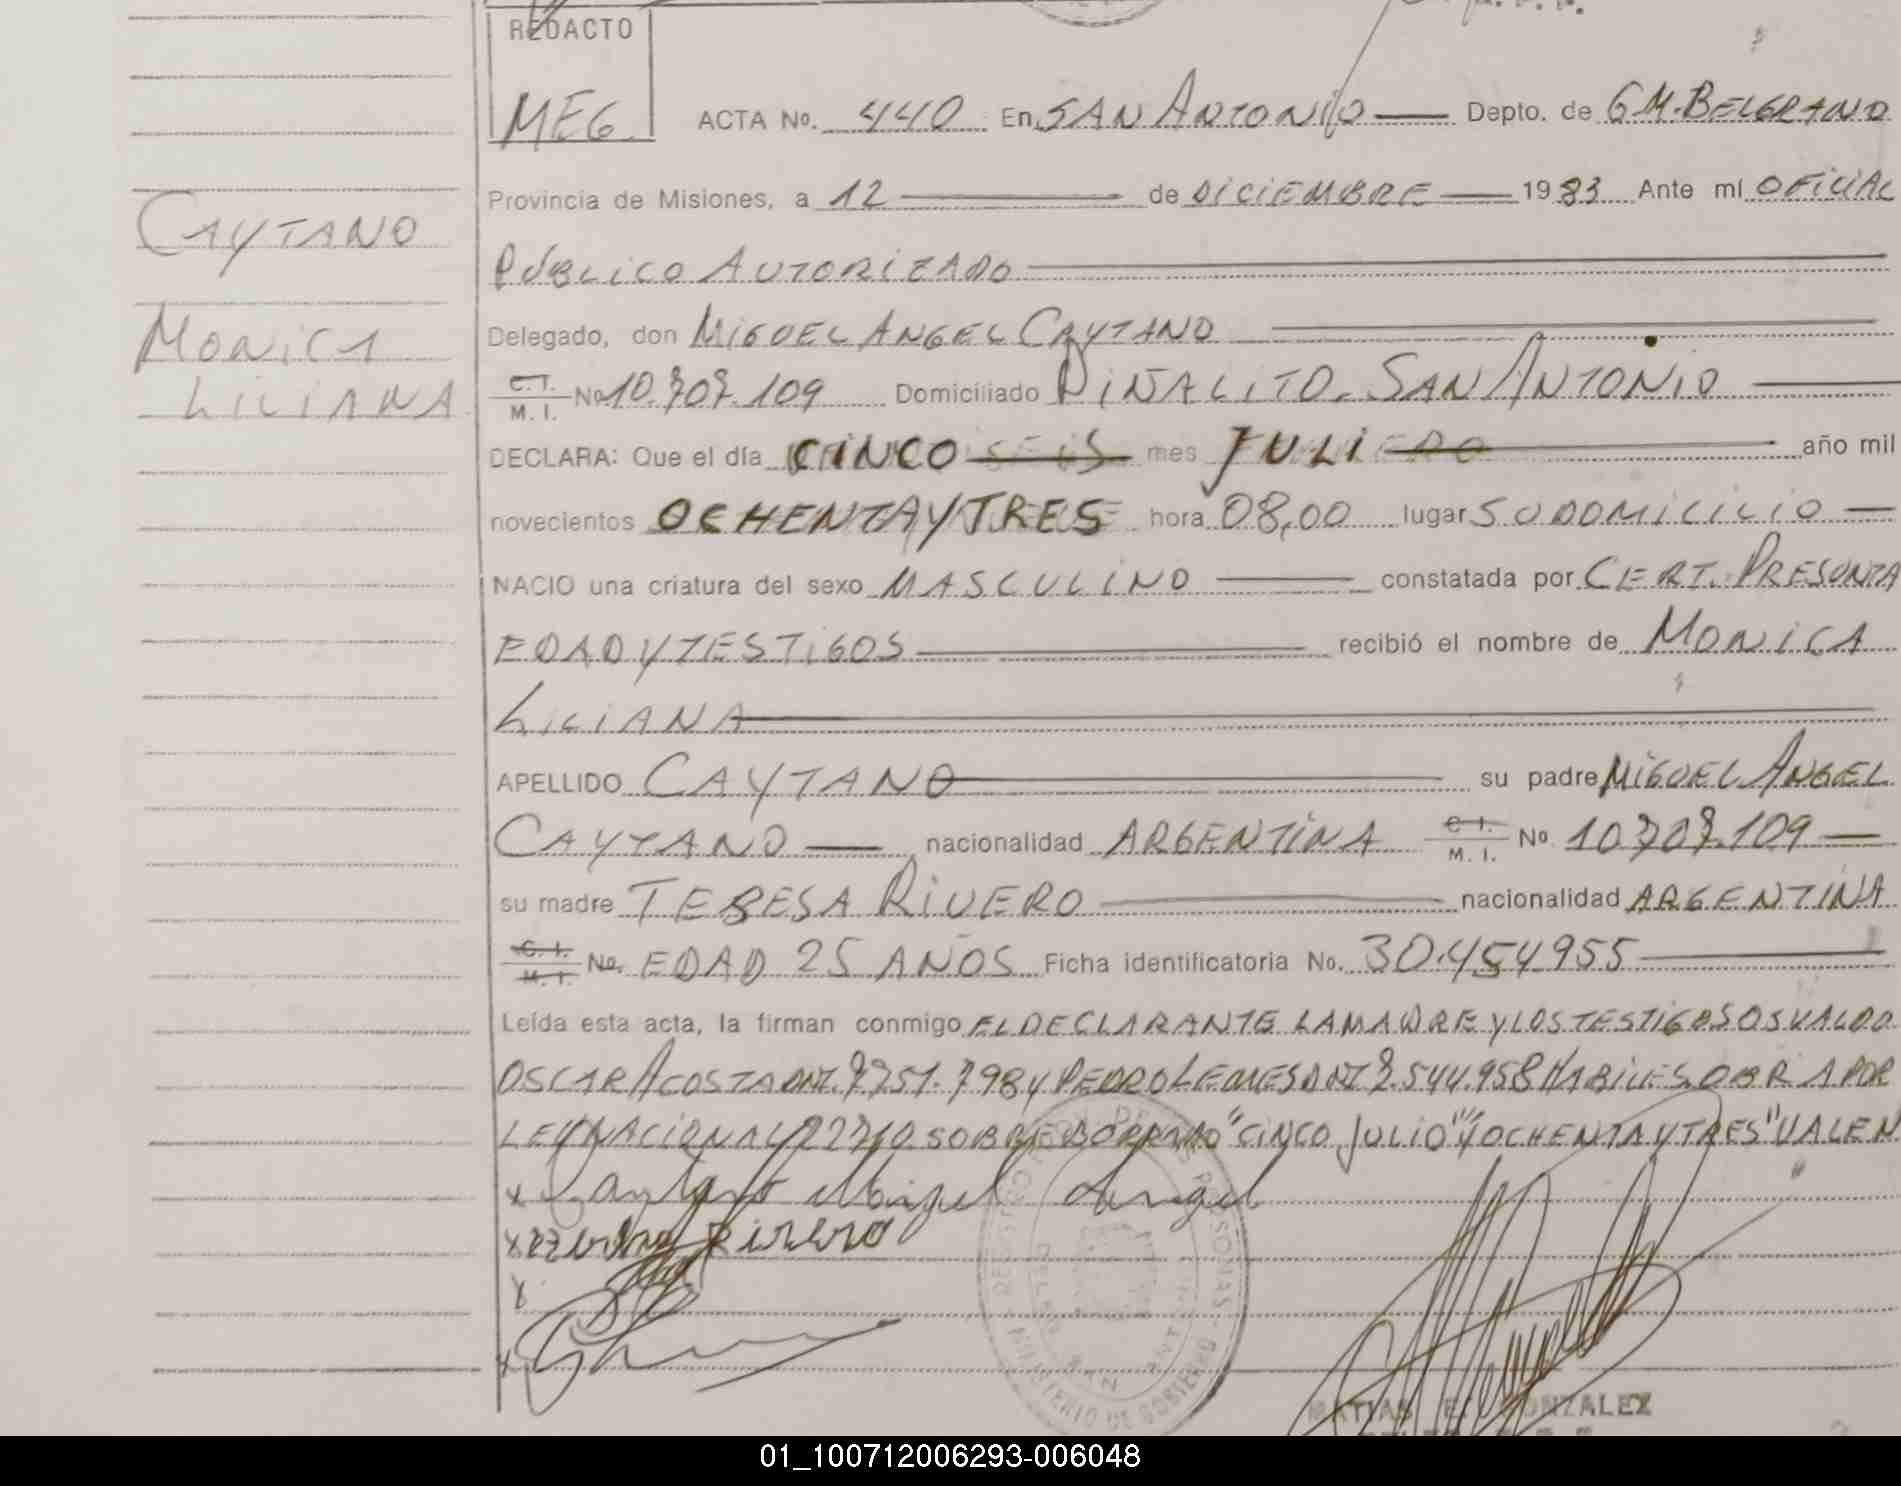 REDACTO
MEG.
ACTA No. 440 En SAN ANTONIO Depto. de G.M.BELGRANO
Provincia de Misiones, a 12 de DICIEMBRE 1983 Ante mí OFICIAL
PÚBLICO AUTORIZADO
CAYTANO
Delegado, don MIGUEL ANGEL CAYTANO
MONICA
C.I. M. I. No 10.707.109 Domiciliado PIÑALITO-SAN ANTONIO
LILIANA
DECLARA: Que el día CINCO mes JULI año mil
novecientos OCHENTA Y TRES hora 08,00 lugar SU DOMICILIO
NACIO una criatura del sexo MASCULINO constatada por CERT. PRESUNTA
EDAD Y TESTIGOS recibió el nombre de MONICA
LILIANA
APELLIDO CAYTANO su padre MIGUEL ANGEL
CAYTANO nacionalidad ARGENTINA C.I. M. I. No 10.707.109
su madre TERESA RIVERO nacionalidad ARGENTINA
C.I. M. I. No. EDAD 25 AÑOS Ficha identificatoria No. 30.454.955
Leída esta acta, la firman conmigo EL DECLARANTE LA MADRE Y LOS TESTIGOS OSVALDO
OSCAR ACOSTA DNI. 7.751.798 Y PEDRO LEMES DNI 7.544.958 HABILES. OBRA POR
LEY NACIONAL SOBRE BORRADO "CINCO JULIO" "Y OCHENTA Y TRES" VALEN
x Caytano Miguel Angel
x Rivero
x
x
MINISTERIO DE GOBIERNO
MATIAS E. GONZALEZ
01_100712006293-006048